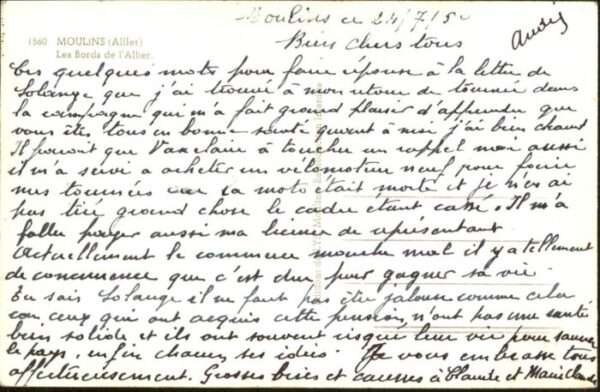 Moulins ce 24/7/5
André
1560 MOULINS (Allier)
Les Bords de l'Allier.
Bien chers tous
Ces quelques mots pour faire réponse à la lettre de
Solange que j'ai trouvé à mon retour de tournée dans
la campagne qui m'a fait grand plaisir d'apprendre que
vous êtes tous en bonne santé quant à moi j'ai bien chaud
Il parait que Vauclair à toucher un rappel moi aussi
il m'a servi a acheter un vélomoteur neuf pour faire
mes tournées car sa moto était morte et je n'en ai
pas tiré grand chose le cadre étant cassé. Il m'a
fallu payer aussi ma licence de représentant
Actuellement le commerce marche mal il y a tellement
de concurrence que c'est dur pour gagner sa vie
Tu sais Solange il ne faut pas être jalouse comme cela
car ceux qui ont acquis cette pension, n'ont pas une santé
bien solide et ils ont souvent risqué leur vie pour sauver
le pays, enfin chacun ses idées. Je vous embrasse tous
affectueusement. Grosses bises et caresses à et Marie Claude